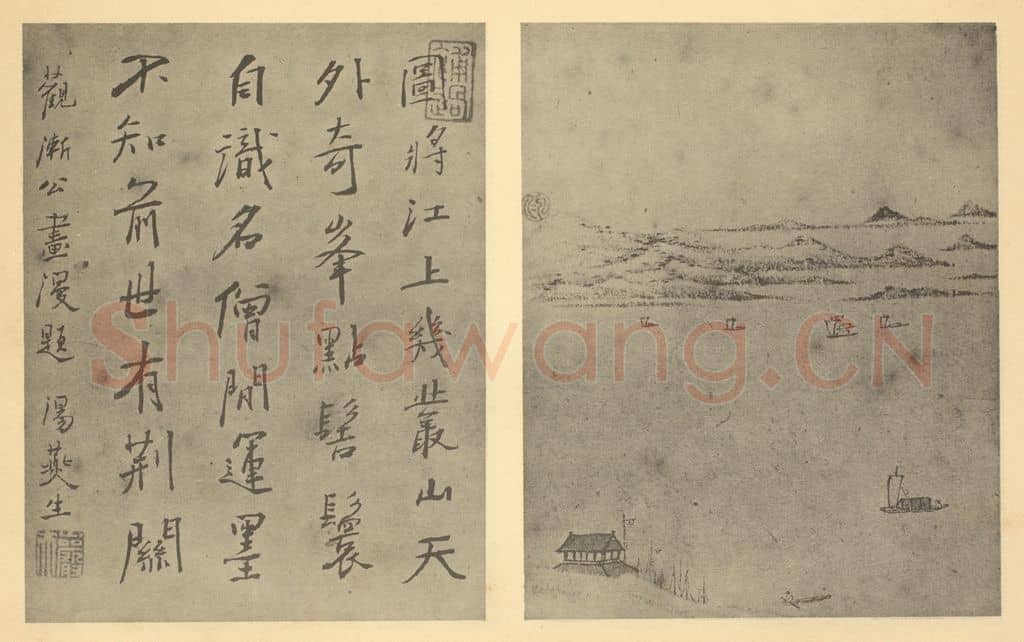 圖將江上幾叢山天
外奇峯點髻鬟
自識名僧閒運墨
不知前世有荊關
觀漸公畫漫題 湯燕生
Shufawang.CN